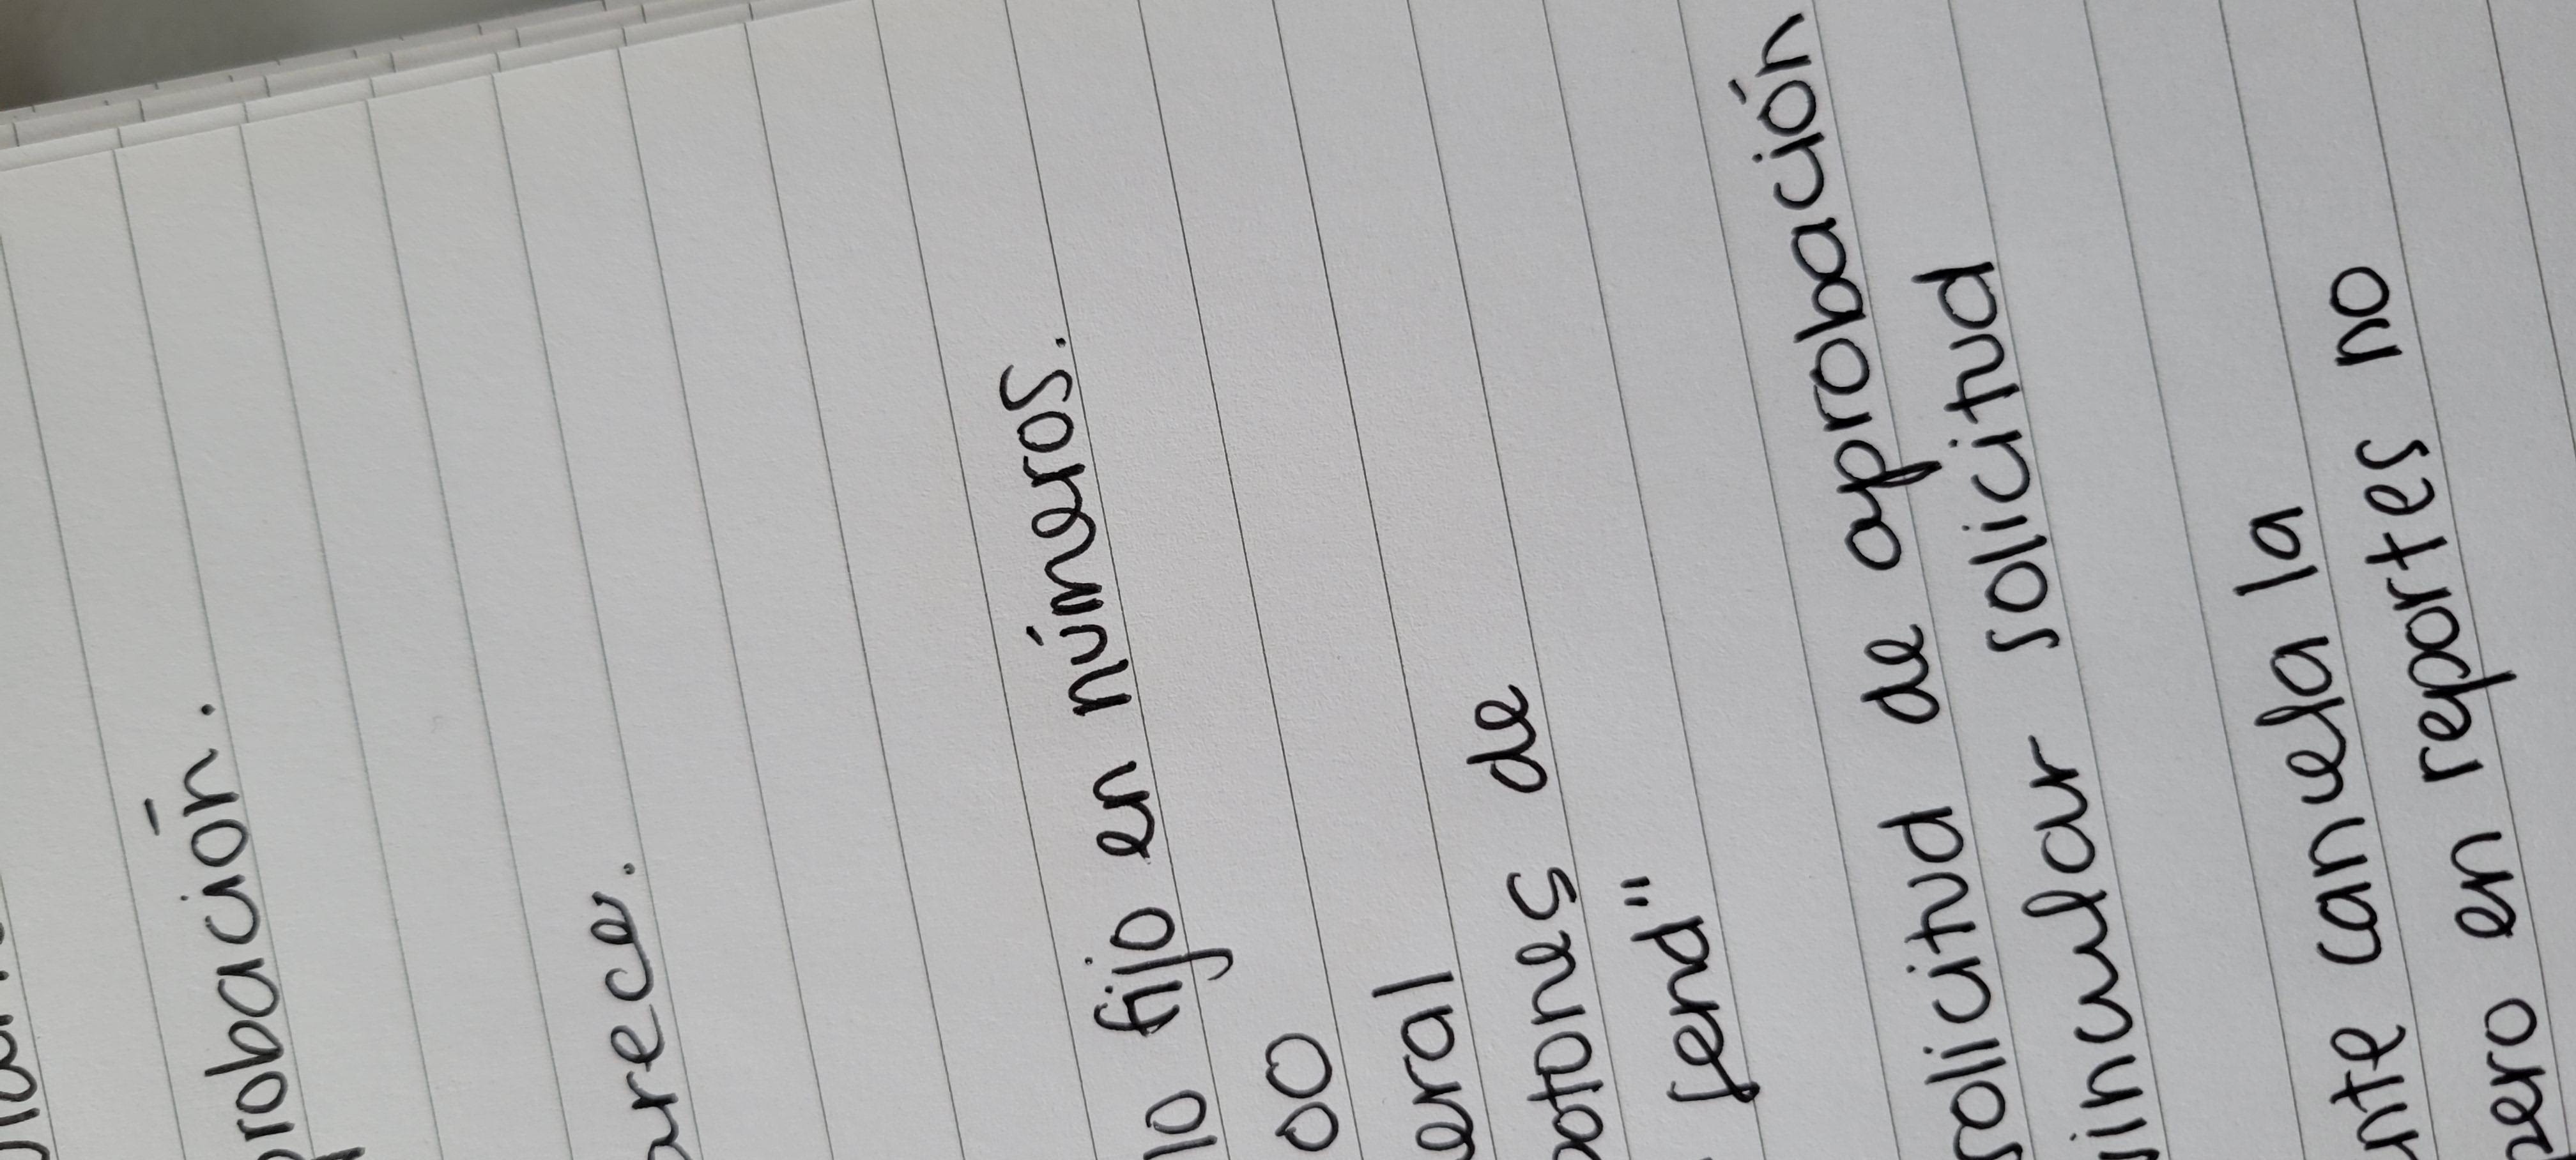 probación.
arece.
lo fijo en números.
00
eral
otones de
fend"
solicitud de aprobación
vincular solicitud
nte cancela la
pero en reportes no